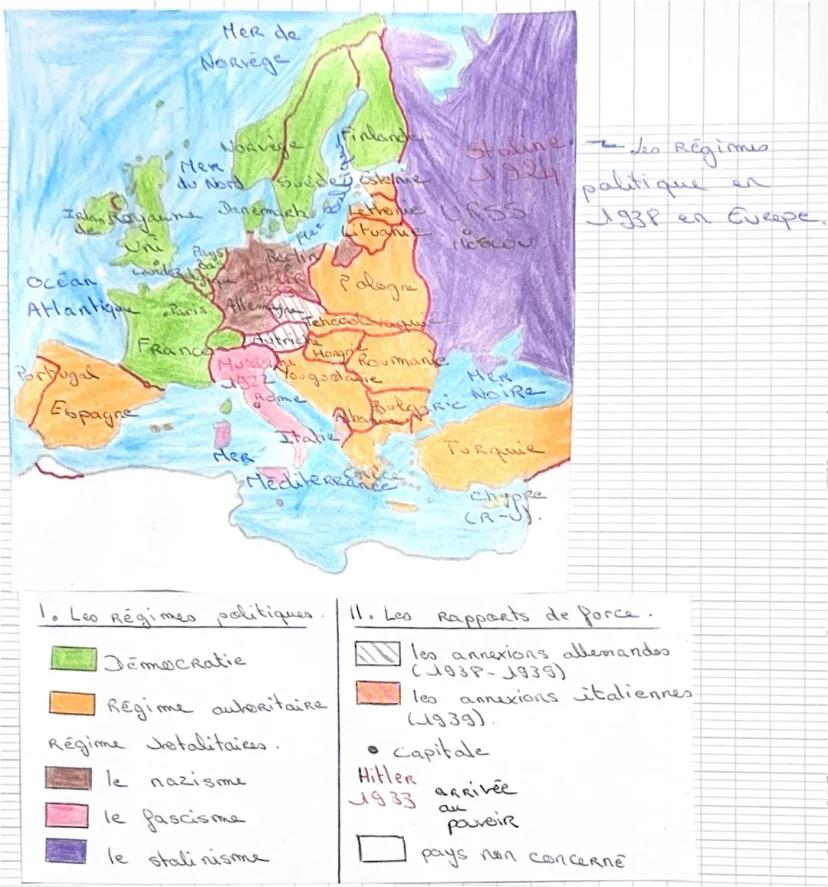 Mer de
Norvège
Norvège
Finlande
Suède
Mer
du Nord
Mer Baltique
Estonie
Staline
1924
Lettonie
URSS
Moscou
Lituanie
Danemark
Irlan
de
Royaume
Uni
Londres
Pays
Bas
Belgique
Berlin
Hitler
1933
Allemagne
Pologne
Océan
Atlantique
Paris
Tchécoslovaquie
France
Autriche
Hongrie
Roumanie
Mussolini
1922
Yougoslavie
Portugal
Espagne
Rome
Italie
Albanie
Bulgarie
MER
NOIRE
Turquie
Grèce
Mer
Méditerranée
Chypre
(R-U).
- Les Régimes
politique en
1938 en Europe.
I. Les Régimes politiques.
Démocratie
Régime autoritaire
Régime totalitaires.
le nazisme
le fascisme
le stalinisme
II. Les Rapports de force.
les annexions allemandes
(1938-1939)
les annexions italiennes
(1939).
capitale
Hitler
1933
arrivée
au
pouvoir
pays non concerné